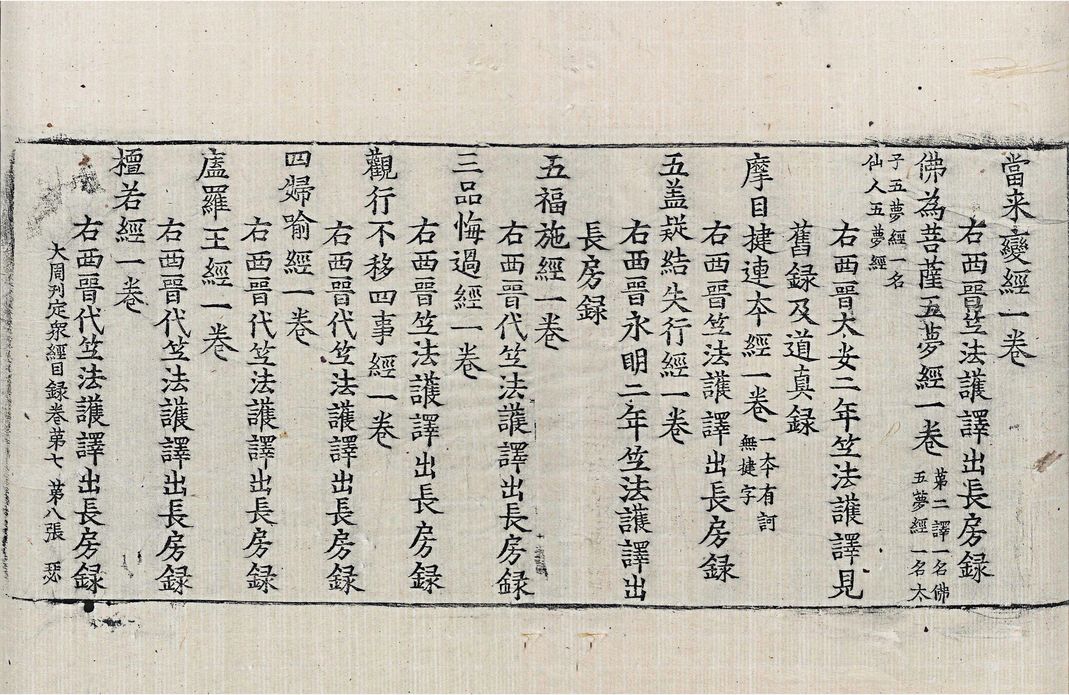 當来變經一卷
右西晉竺法護譯出長房録
佛為菩薩五夢經一卷 第二譯一名佛
五夢經一名太
子五夢經一名
仙人五夢經
右西晉太安二年竺法護譯見
舊録及道真録
摩目揵連夲經一卷 一夲有訶
無揵字
右西晉竺法護譯出長房録
五盖疑結失行經一卷
右西晉永明二年竺法護譯出
長房録
五福施經一卷
右西晉代竺法護譯出長房録
三品悔過經一卷
右西晉竺法護譯出長房録
觀行不移四事經一卷
右西晉代竺法護譯出長房録
四婦喻經一卷
右西晉代竺法護譯出長房録
廅羅王經一卷
右西晉代竺法護譯出長房録
檀若經一卷
右西晉代竺法護譯出長房録
大周刋定衆經目録卷第七 第八張 瑟